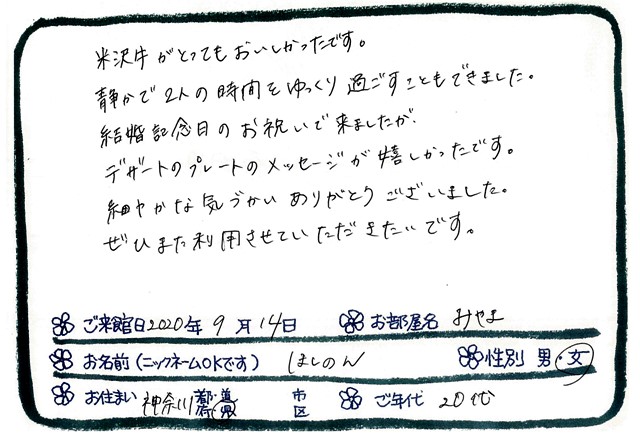 米沢牛がとってもおいしかったです。
静かで2人の時間をゆっくり過ごすこともできました。
結婚記念日のお祝いで来ましたが、
デザートのプレートのメッセージが嬉しかったです。
細やかな気づかいありがとうございました。
ぜひまた利用させていただきたいです。
ご来館日2020年9月14日 お部屋名 みやま
お名前(ニックネームOKです) ほしのん 性別 男・女
お住まい 神奈川 都道府県 市区 ご年代 20代